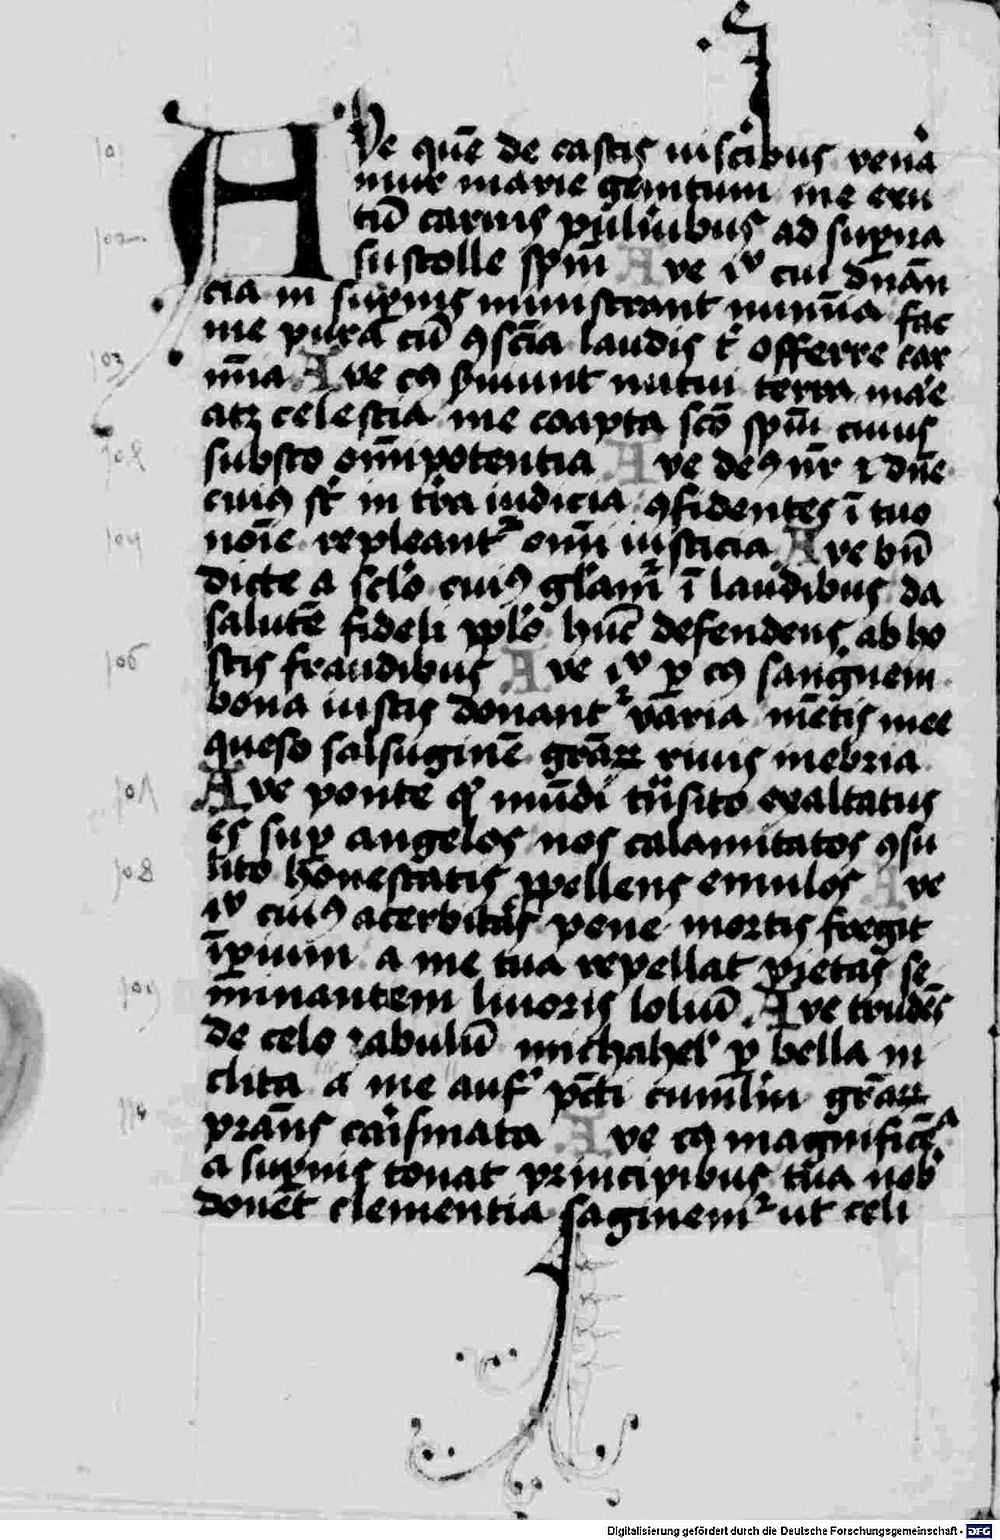 101 AVe quē de castis viscibus venā
mur marie genitum me exu
102 tū carnis pulūibus ad supna
sustolle spm Ave iħu cui dnān
cia in supnis ministrant numīa fac
me pura cū ꝯsciā laudis t' offerre car
103 mīa Ave cꝰ ſmunt nutui terra mare
atꝫ celestia me coapta scō spm cuius
104 substo omīpotentia Ave deꝰ nr ⁊ dn̄e
cuiꝰ st in tra iudicia ꝯfidentes ī tuo
105 noīe repleantʳ omī iusticia Ave bn̄
dicte a sclo cuiꝰ glam ī laudibus da
salutē fideli pplo hūc defendens ab ho
106 stis fraudibus Ave iħu p cꝰ sanguinem
bona iustis donantʳ varia mētis mee
queso salsuginē grāꝝ riuis inebria
107 Ave ponte qͥ mūdi trāsito exaltatus
es sup angelos nos calamitatos ꝯsu
108 lito honestatis ppellens emulos Ave
iħu cuiꝰ acerbitas pene mortis fregit
īpium a me tua repellat pietas se
109 minantem liuoris loliū Ave trudēs
de celo zabulū michahel' p bella in
clita a me auf' pcti cumlm grāꝝ
110 prāns carismata Ave cꝰ magnificēᵃ
a supnis tonat principibus tua nob'
donet clementia saginemʳ ut celi
Digitalisierung gefördert durch die Deutsche Forschungsgemeinschaft - DFG